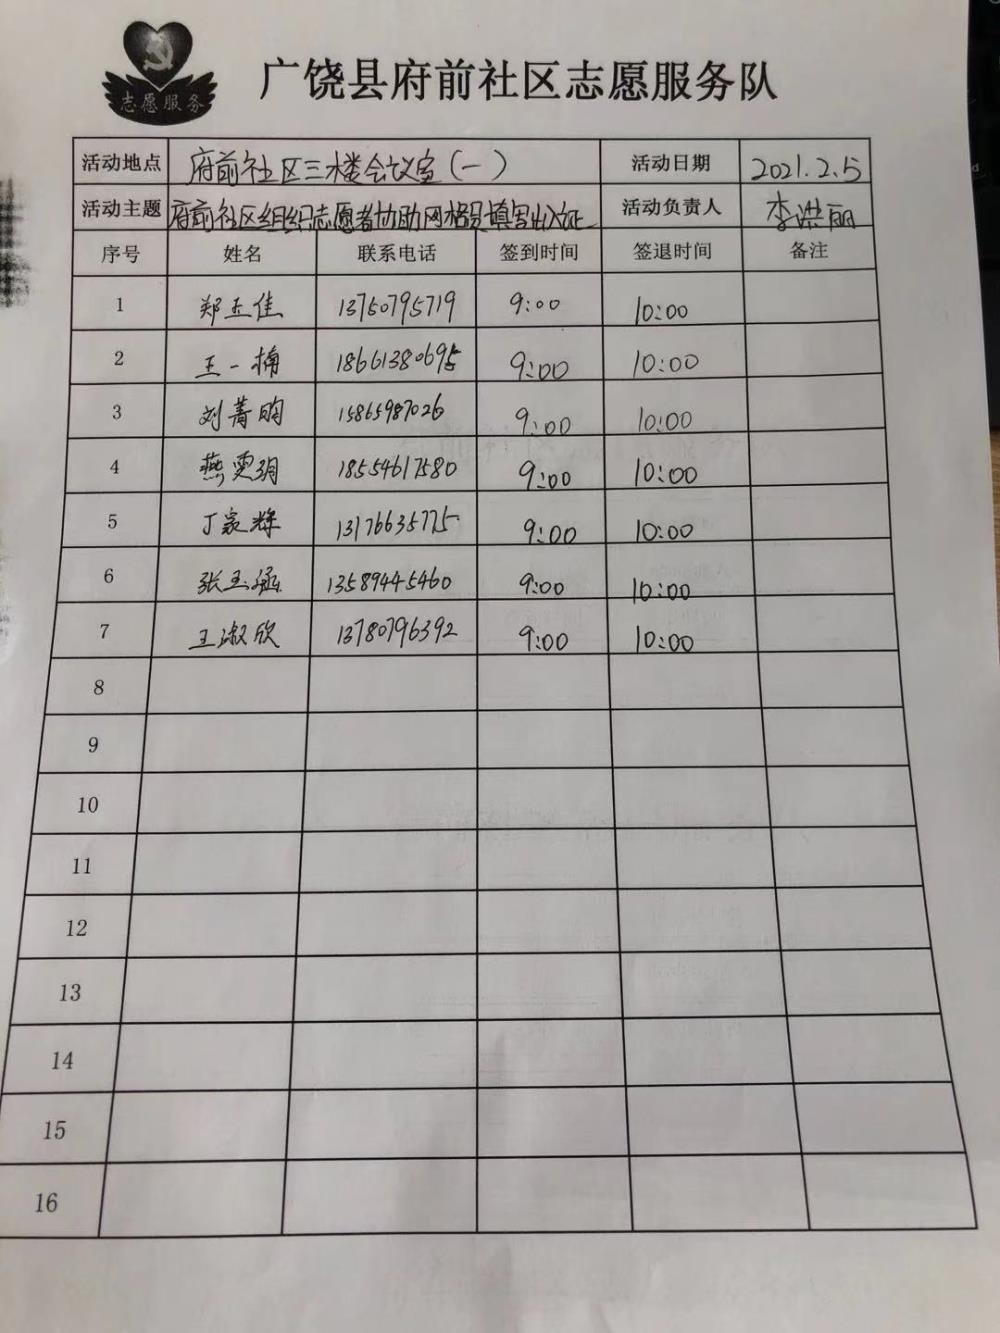 志愿服务
广饶县府前社区志愿服务队
活动地点 府前社区三楼会议室(一) 活动日期 2021.2.5
活动主题 府前社区组织志愿者协助网格员填写出入证 活动负责人 李洪丽
序号 姓名 联系电话 签到时间 签退时间 备注
1 郑玉佳 13750795719 9:00 10:00
2 王一楠 18661380695 9:00 10:00
3 刘菁昀 15865987026 9:00 10:00
4 燕雯玥 18554617580 9:00 10:00
5 丁家烨 13176635775 9:00 10:00
6 张玉涵 13589445460 9:00 10:00
7 王淑欣 13780796392 9:00 10:00
8
9
10
11
12
13
14
15
16